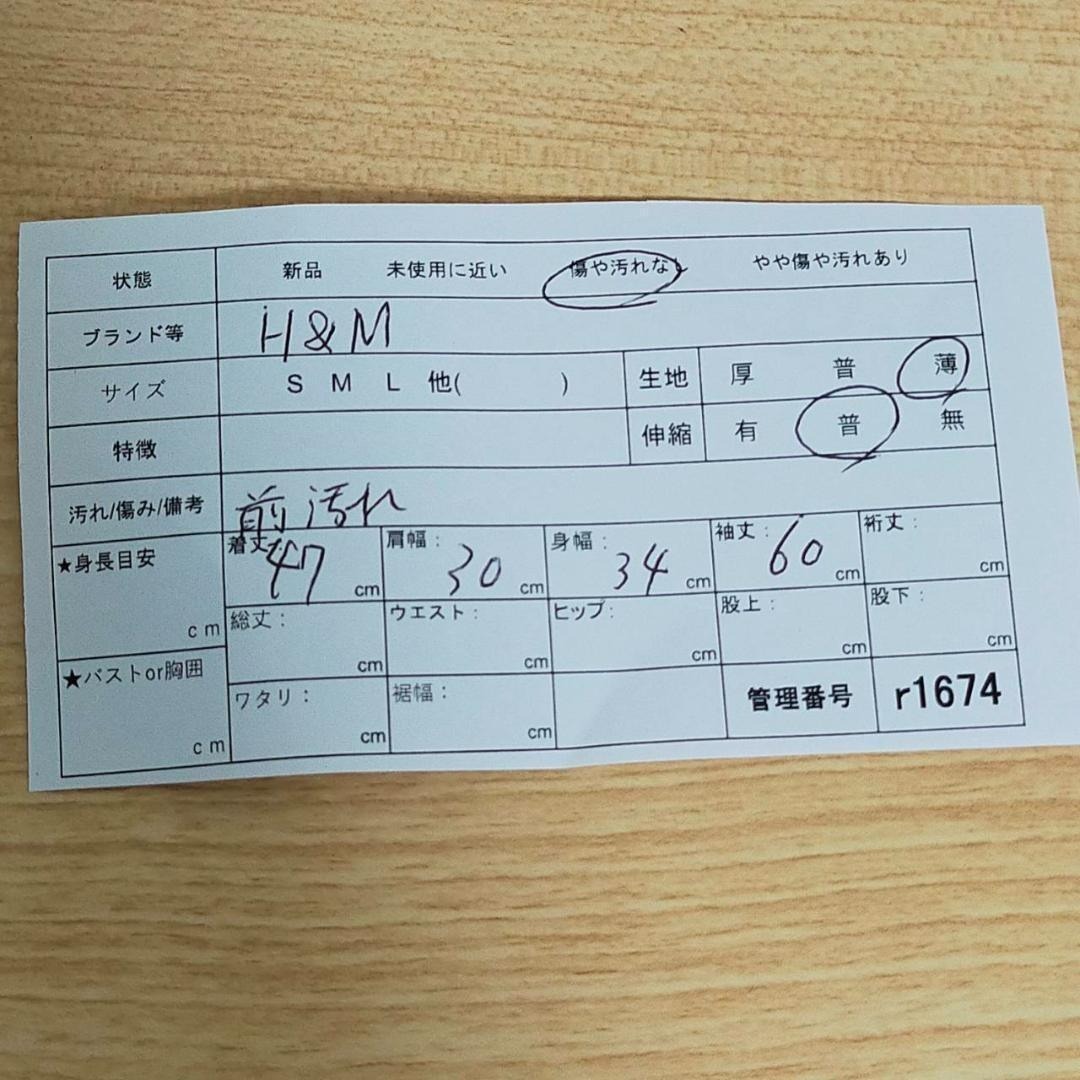 状態 新品 未使用に近い 傷や汚れなし やや傷や汚れあり
ブランド等 H&M
サイズ S M L 他( ) 生地 厚 普 薄
特徴 伸縮 有 普 無
汚れ/傷み/備考 前汚れ
★身長目安 cm 着丈: 47 cm 肩幅: 30 cm 身幅: 34 cm 袖丈: 60 cm 裄丈: cm
総丈: cm ウエスト: cm ヒップ: cm 股上: cm 股下: cm
★バストor胸囲 cm ワタリ: cm 裾幅: cm 管理番号 r1674